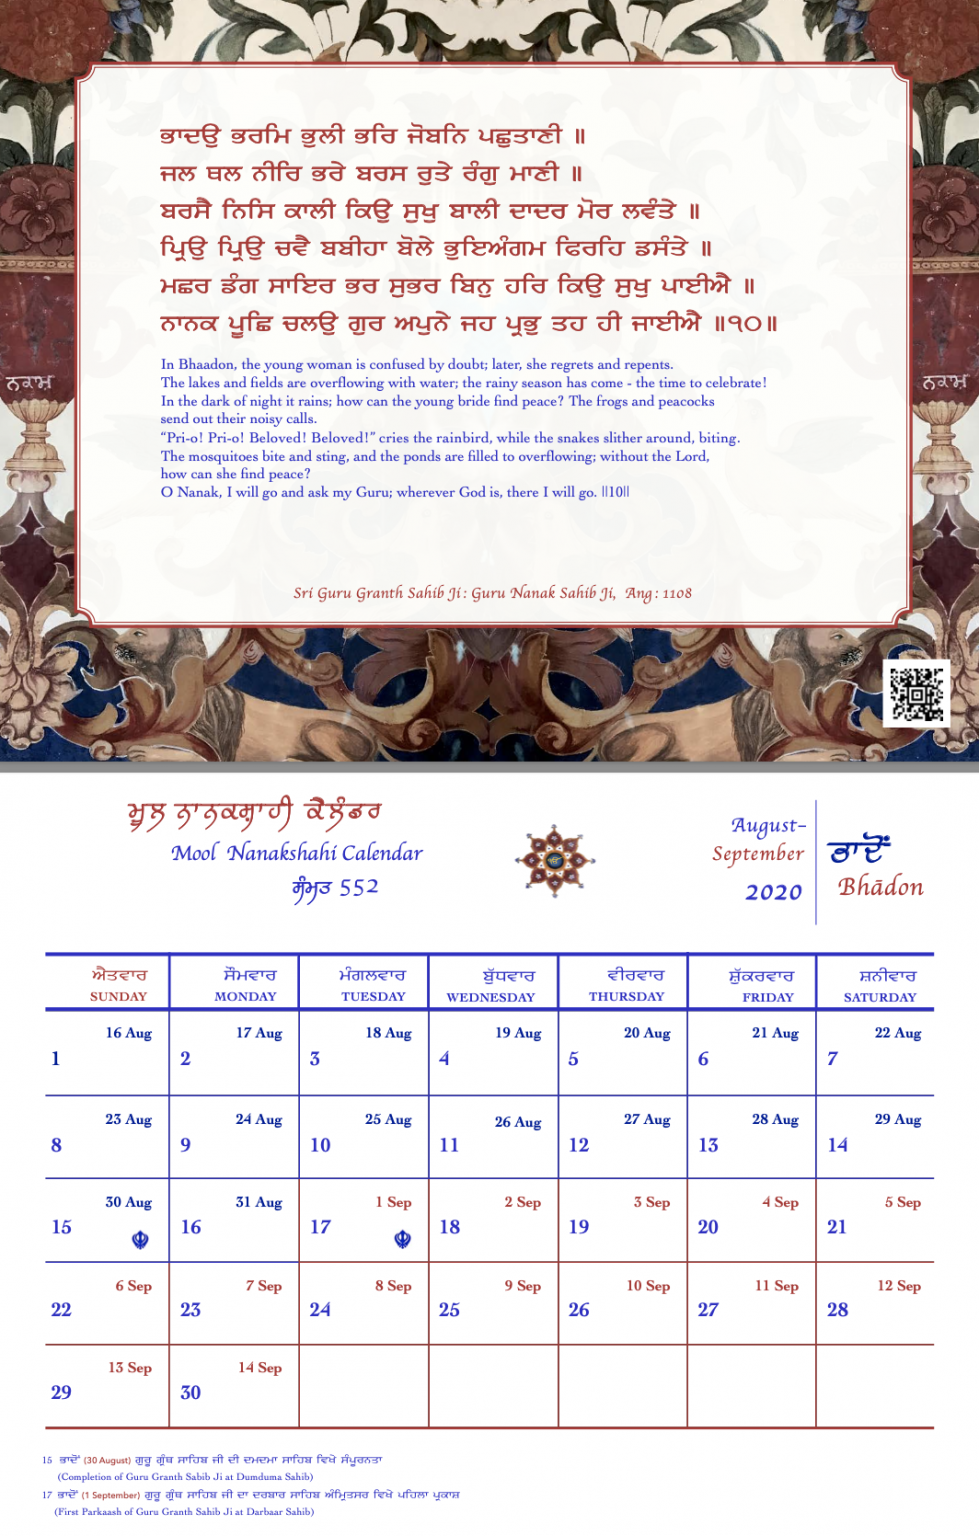 ਭਾਦਉ ਭਰਮਿ ਭੁਲੀ ਭਰਿ ਜੋਬਨਿ ਪਛੁਤਾਣੀ ॥
ਜਲ ਥਲ ਨੀਰਿ ਭਰੇ ਬਰਸ ਰੁਤੇ ਰੰਗੁ ਮਾਣੀ ॥
ਬਰਸੈ ਨਿਸਿ ਕਾਲੀ ਕਿਉ ਸੁਖੁ ਬਾਲੀ ਦਾਦਰ ਮੋਰ ਲਵੰਤੇ ॥
ਪ੍ਰਿਉ ਪ੍ਰਿਉ ਚਵੈ ਬਬੀਹਾ ਬੋਲੇ ਭੁਇਅੰਗਮ ਫਿਰਹਿ ਡਸੰਤੇ ॥
ਮਛਰ ਡੰਗ ਸਾਇਰ ਭਰ ਸੁਭਰ ਬਿਨੁ ਹਰਿ ਕਿਉ ਸੁਖੁ ਪਾਈਐ ॥
ਨਾਨਕ ਪੂਛਿ ਚਲਉ ਗੁਰ ਅਪੁਨੇ ਜਹ ਪ੍ਰਭੁ ਤਹ ਹੀ ਜਾਈਐ ॥੧੦॥
In Bhaadon, the young woman is confused by doubt; later, she regrets and repents.
The lakes and fields are overflowing with water; the rainy season has come - the time to celebrate!
In the dark of night it rains; how can the young bride find peace? The frogs and peacocks
send out their noisy calls.
“Pri-o! Pri-o! Beloved! Beloved!” cries the rainbird, while the snakes slither around, biting.
The mosquitoes bite and sting, and the ponds are filled to overflowing; without the Lord,
how can she find peace?
O Nanak, I will go and ask my Guru; wherever God is, there I will go. ||10||
Sri Guru Granth Sahib Ji : Guru Nanak Sahib Ji, Ang : 1108
ਨਕਾਸ਼ ਨਕਾਸ਼
ਮੂਲ ਨਾਨਕਸ਼ਾਹੀ ਕੈਲੰਡਰ
Mool Nanakshahi Calendar
ਸੰਮਤ 552
August-
September
2020
ਭਾਦੋਂ
Bhādon
ਐਤਵਾਰ ਸੋਮਵਾਰ ਮੰਗਲਵਾਰ ਬੁੱਧਵਾਰ ਵੀਰਵਾਰ ਸ਼ੁੱਕਰਵਾਰ ਸ਼ਨੀਵਾਰ
SUNDAY MONDAY TUESDAY WEDNESDAY THURSDAY FRIDAY SATURDAY
16 Aug 17 Aug 18 Aug 19 Aug 20 Aug 21 Aug 22 Aug
1 2 3 4 5 6 7
23 Aug 24 Aug 25 Aug 26 Aug 27 Aug 28 Aug 29 Aug
8 9 10 11 12 13 14
30 Aug 31 Aug 1 Sep 2 Sep 3 Sep 4 Sep 5 Sep
15 16 17 18 19 20 21
6 Sep 7 Sep 8 Sep 9 Sep 10 Sep 11 Sep 12 Sep
22 23 24 25 26 27 28
13 Sep 14 Sep
29 30
15 ਭਾਦੋਂ (30 August) ਗੁਰੂ ਗ੍ਰੰਥ ਸਾਹਿਬ ਜੀ ਦੀ ਦਮਦਮਾ ਸਾਹਿਬ ਵਿਖੇ ਸੰਪੂਰਨਤਾ
(Completion of Guru Granth Sabib Ji at Dumduma Sahib)
17 ਭਾਦੋਂ (1 September) ਗੁਰੂ ਗ੍ਰੰਥ ਸਾਹਿਬ ਜੀ ਦਾ ਦਰਬਾਰ ਸਾਹਿਬ ਅੰਮ੍ਰਿਤਸਰ ਵਿਖੇ ਪਹਿਲਾ ਪ੍ਰਕਾਸ਼
(First Parkaash of Guru Granth Sahib Ji at Darbaar Sahib)